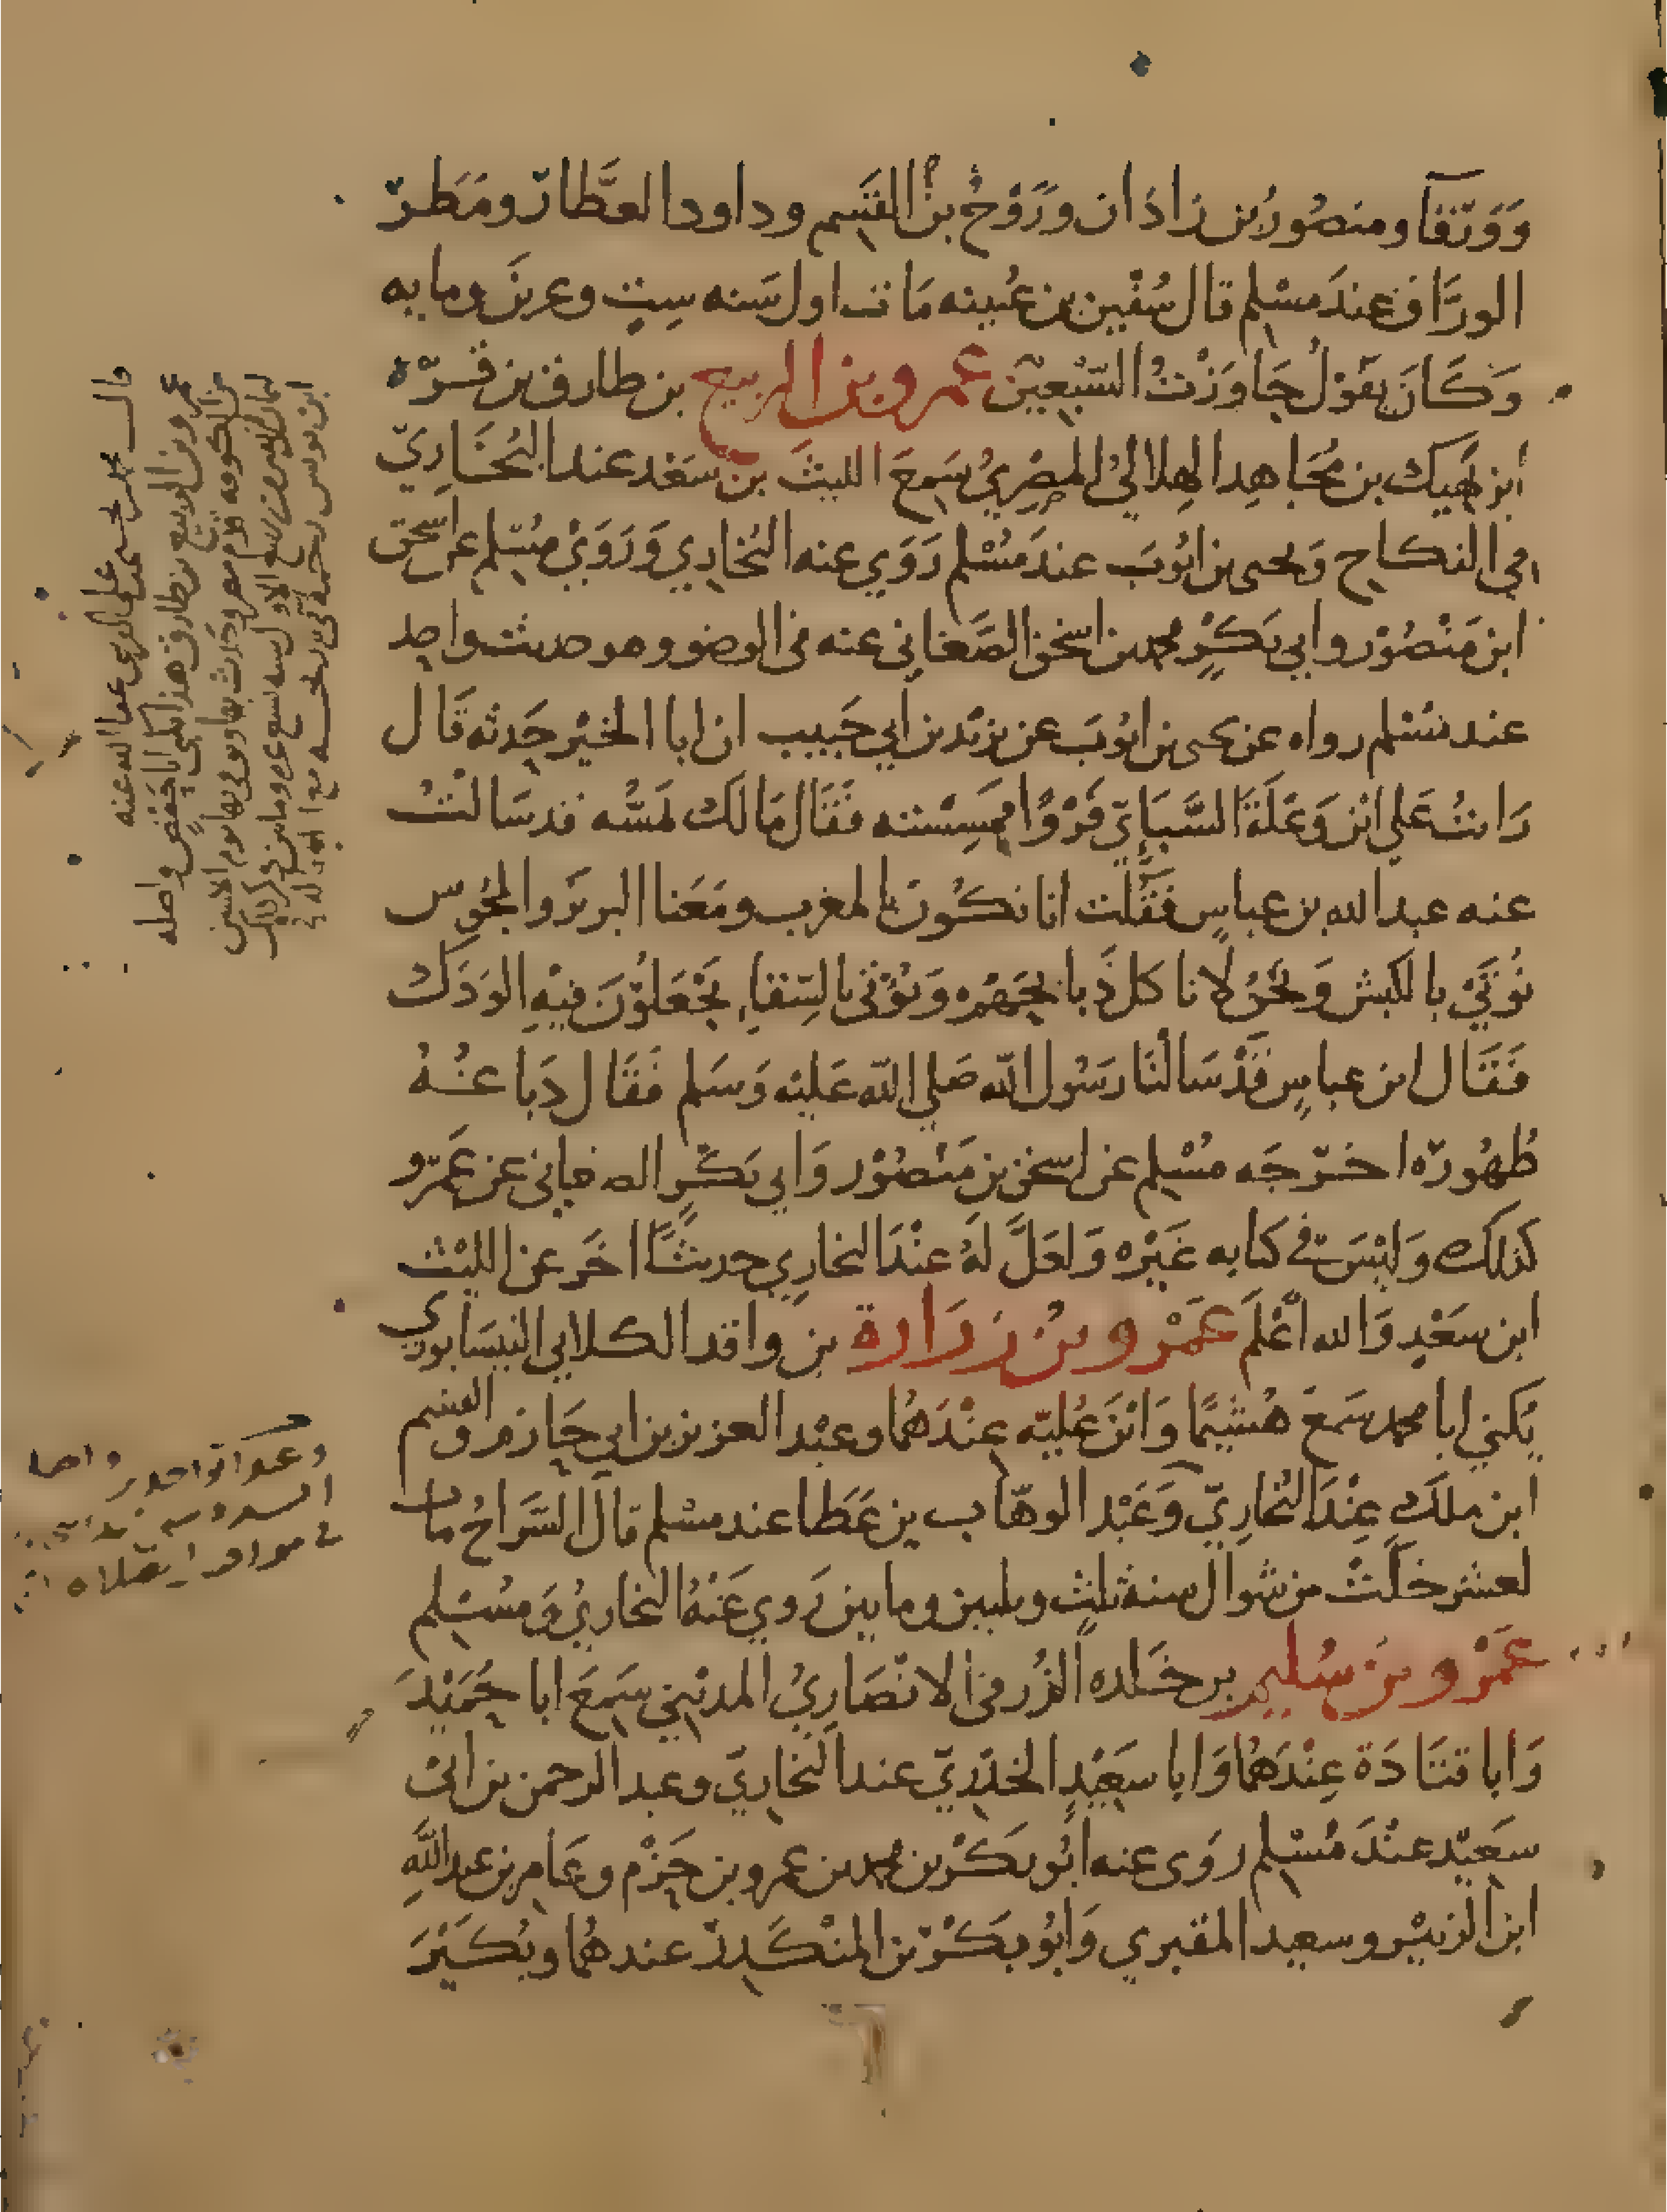 وَوَرْقَآ ومنصُورُ بن زاذان ورَوْحُ بنُ القسم وداود العطَّار ومَطر
الورَّاق عندَ مسْلم قال سُفْين بن عُيينه مَات اول سَنه سِتٍ وعرىن ومايه
وَكَانَ يقوْلُ جَاوَزْتُ السّبْعِيْن عمرو بن الربيع بن طارق بن قرّه
ابن نَهِيك بن مُجَاهِد الهِلاليُ المِصْرِيُ سَمِعَ الليثَ بن سَعْد عند البُخَاريّ
في النكاح وَيحيى بن ايُوبَ عندَ مُسْلم رَوَي عنه البُخاري وَرَوَيْ مُسْلم عن اسحق
ابن مَنْصُوْر وابي بَكرٍ محمد بن اسحق الصَّغاني عنه في الوضو وهو حديث واحِد
عند مُسْلم رواه عن يحيى بن ايُوبَ عن يزيْد بن ابي حَبيب ان ابا الخيْر حَدثه قَال
رَايتُ عَلي ابْن وَعَلَةَ السَّبَإيّ فَرْوًا فمَسِسْته فقَال مَا لكَ تمَسُّه قد سَالتُ
عنه عبد الله بن عباسٍ فقُلت انا نكُون بالمغرب ومَعَنا البربَر والمجُوس
نُؤتَيْ بالكبْش وَنحْنُ لا ناكل ذَبايحَهُم وَنُؤْتي بالسّقاءِ يَجْعَلُوْنَ فيْهِ الوَدَكَ
فَقَال ابن عباسٍ قَدْ سَالْنَا رسُول الله صَلي الله عَليْه وَسَلم فقَال دبَاغُهُ
طُهُورُه اخرَجَه مُسْلم عن اسحق بن مَنْصُوْر وَابي بَكْرٍ الصغاني عن عَمْرٍو
كذلك وَليْسَ في كتابه غَيْره وَلعَلَّ لَهُ عنْدَ البخاري حديثًا اخَر عن الليْث
ابن سَعْدٍ وَالله اعْلَم عَمْرو بن زرارة بن واقد الكلابي النيسَابوري
يُكني ابا محمد سَمعَ هُشيمًا وَابْنَ عُليّه عِنْدَهُما وعبْد العزيز بن ابي حَازم والقسم
ابن مٰلكٍ عِنْدَ البُخاريّ وَعَبْد الوهّاب بن عَطا عند مسْلم قال السَّرَاجُ مات
لعشر خلَتْ من شوال سنة ثلثٍ وثلثين ومايتين رَوي عَنْهُ البخاريُ وَمسْلم
عَمْرو بن سُليم بن خَلده الزُرقي الانْصَاريُ المدنيُ سَمِعَ ابا حُمَيْد
وَابا قتَادَة عِنْدَهُمَا وَابا سعَيْدٍ الخدْريّ عند البخاريّ وعبد الرحمن بن ابيْ
سعَيْد عنْدَ مُسْلم روَى عنه ابُو بكْر بن محمد بن عمرو بن حَزْم وعَامر بن عبد اللهِ
ابن الزبيْر وسعيد المقبري وَابُو بَكْر بن المنْكَدِر عندهُما وبُكَيْر
قال محمد بن علي القرشي عفا الله عنه
عمرو بن الربيع بن طارق هذا يكنى ابا حَفْصٍ واصله
من الكوفه قدم مصر وحدث بها وتوفي بها يوم الاثنين